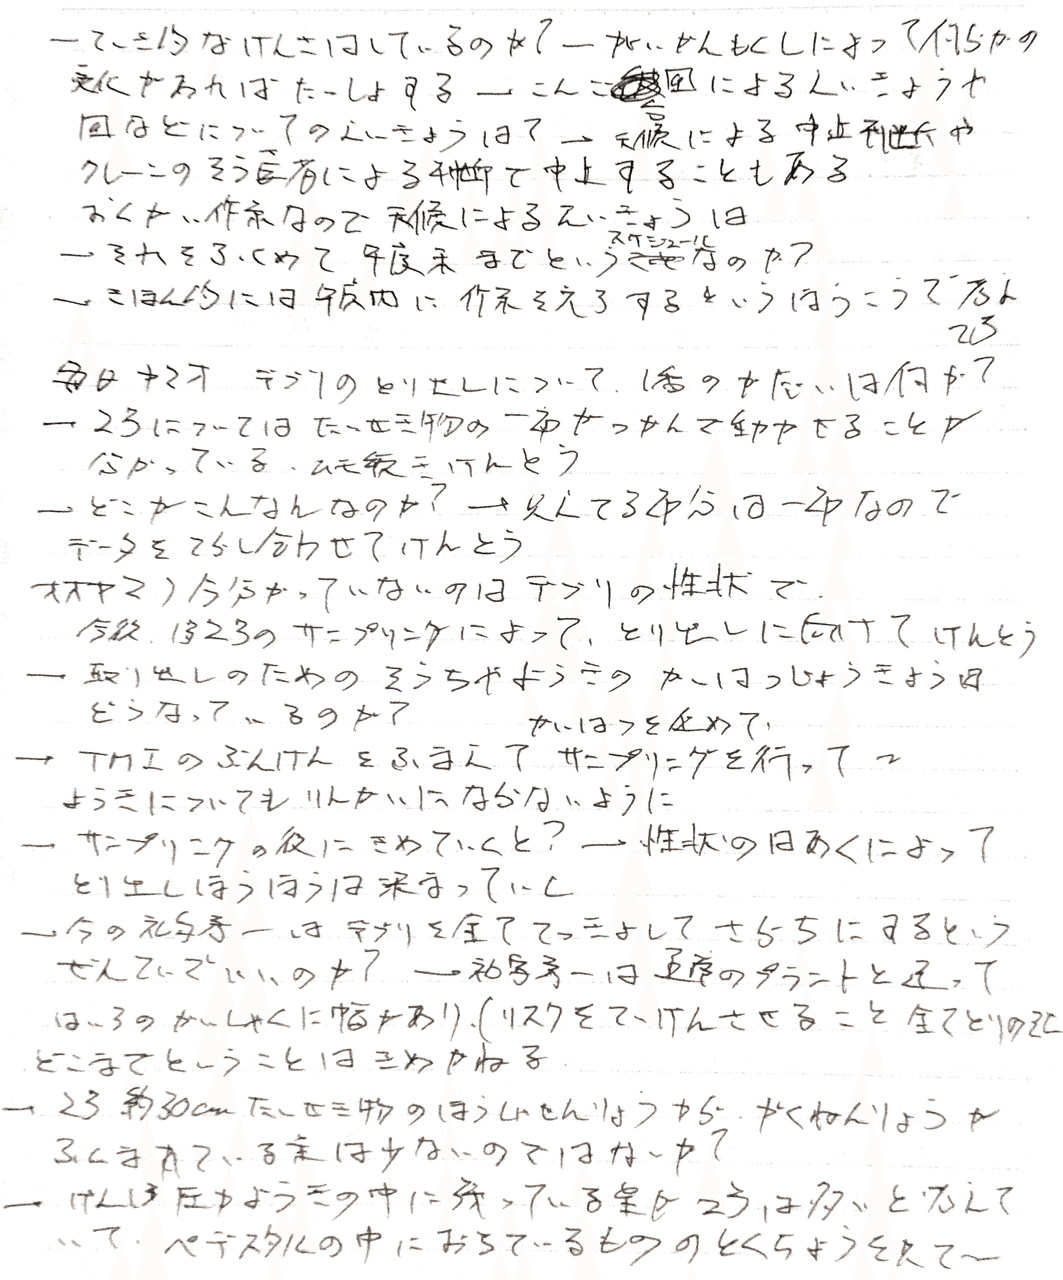 → ていき的なけんさはしているのか? → がいかんもくしによって何らかの
変化があればたいしょする → こんご 雨によるえいきょうや
雨などについてのえいきょうは? → 天候による中止判断や
クレーンのそう者による判断で中止することもある
おくがい作業なので天候によるえいきょうは
→ それをふくめて年度末までというスケジュールなのか?
→ きほん的には年度内に作業を完了するというほうこうで考え
てる
毎日 ヤマオ デブリのとり出しについて、1番のか だいは何か?
→ 2号についてはたいせき物の一部がつかんで動かせることが
分かっている。 きけんとう
→ どこがこんなんなのか? → 見えてる部分は一部なので
データをてらし合わせてけんとう
オオヤマ) 今分かっていないのはデブリの性状で
今後、1号2号のサンプリングによって、とり出しに向けてけんとう
→ 取り出しのためのそうちやようきのかいはつじょうきょうは
どうなっているのか?
かいはつを進めて、
→ TMIのぶんけんをふまえてサンプリングを行って〜
ようきについてもりんかいにならないように
→ サンプリングの後にきめていくと? → 性状のはあくによって
とり出しほうほうは決まっていく
→ 今の は デブリを全ててっきょしてさら ちにするという
ぜんていでいいのか? → は 通常のプラントと違って
はいろのかいしゃくに幅があり、(リスクをていげんさせること 全てとりのぞく
どこまでということはきめかねる
→ 2号 約30cm たいせき物のほうしゃせんりょうから、かくねんりょうが
ふくまれている量は少ないのではないか?
→ げんしろ圧力ようきの中に残っている量は2号は多いと考えて
いて、ペデスタルの中におちているもののとくちょうを見て〜